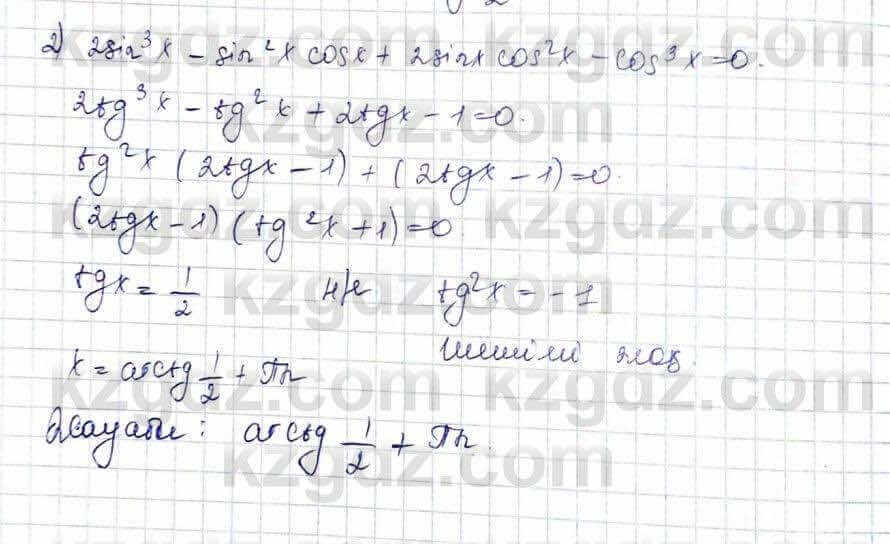 2) 2sin³x - sin²x cosx + 2sinx cos²x - cos³x = 0.
2tg³x - tg²x + 2tgx - 1 = 0.
tg²x (2tgx - 1) + (2tgx - 1) = 0.
(2tgx - 1) (tg²x + 1) = 0.
tgx = 1/2 н/е tg²x = -1
шешімі жоқ.
x = arctg 1/2 + πn
Жауабы: arctg 1/2 + πn.
kzgdz.com